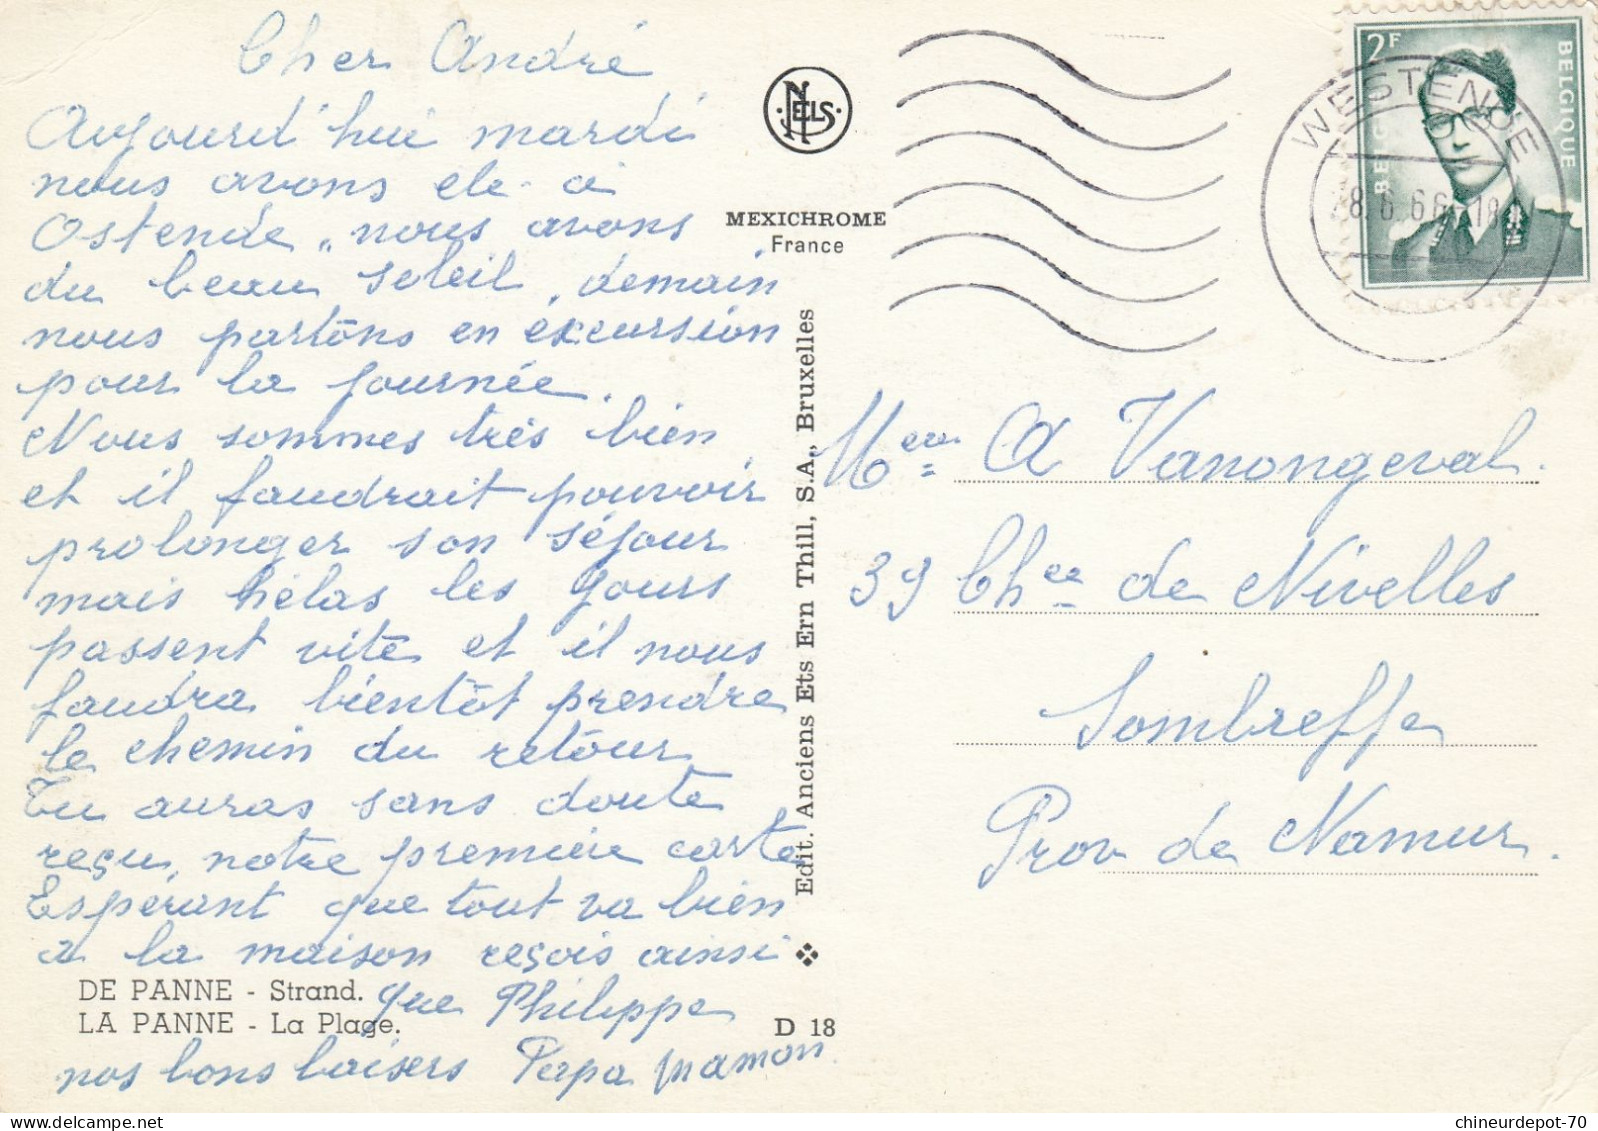 Cher André
Aujourd'hui mardi
nous avons été à
Ostende, nous avons
du beau soleil, demain
nous partons en excursion
pour la journée.
Nous sommes très bien
et il faudrait pouvoir
prolonger son séjour
mais hélas les jours
passent vite et il nous
faudra bientôt prendre
le chemin du retour
Tu auras sans doute
reçu, notre première carte
Espérant que tout va bien
a la maison reçois ainsi
que Philippe
nos bons baisers Papa Maman
DE PANNE - Strand.
LA PANNE - La Plage.
D 18
NELS
MEXICHROME
France
Edit. Anciens Ets Ern Thill, S.A., Bruxelles
2F
BELGIQUE
BELG
WESTENDE
8.6.66
18
A Vanongeval.
39 Chée de Nivelles
Sombreffe
Prov de Namur.
chineurdepot-70